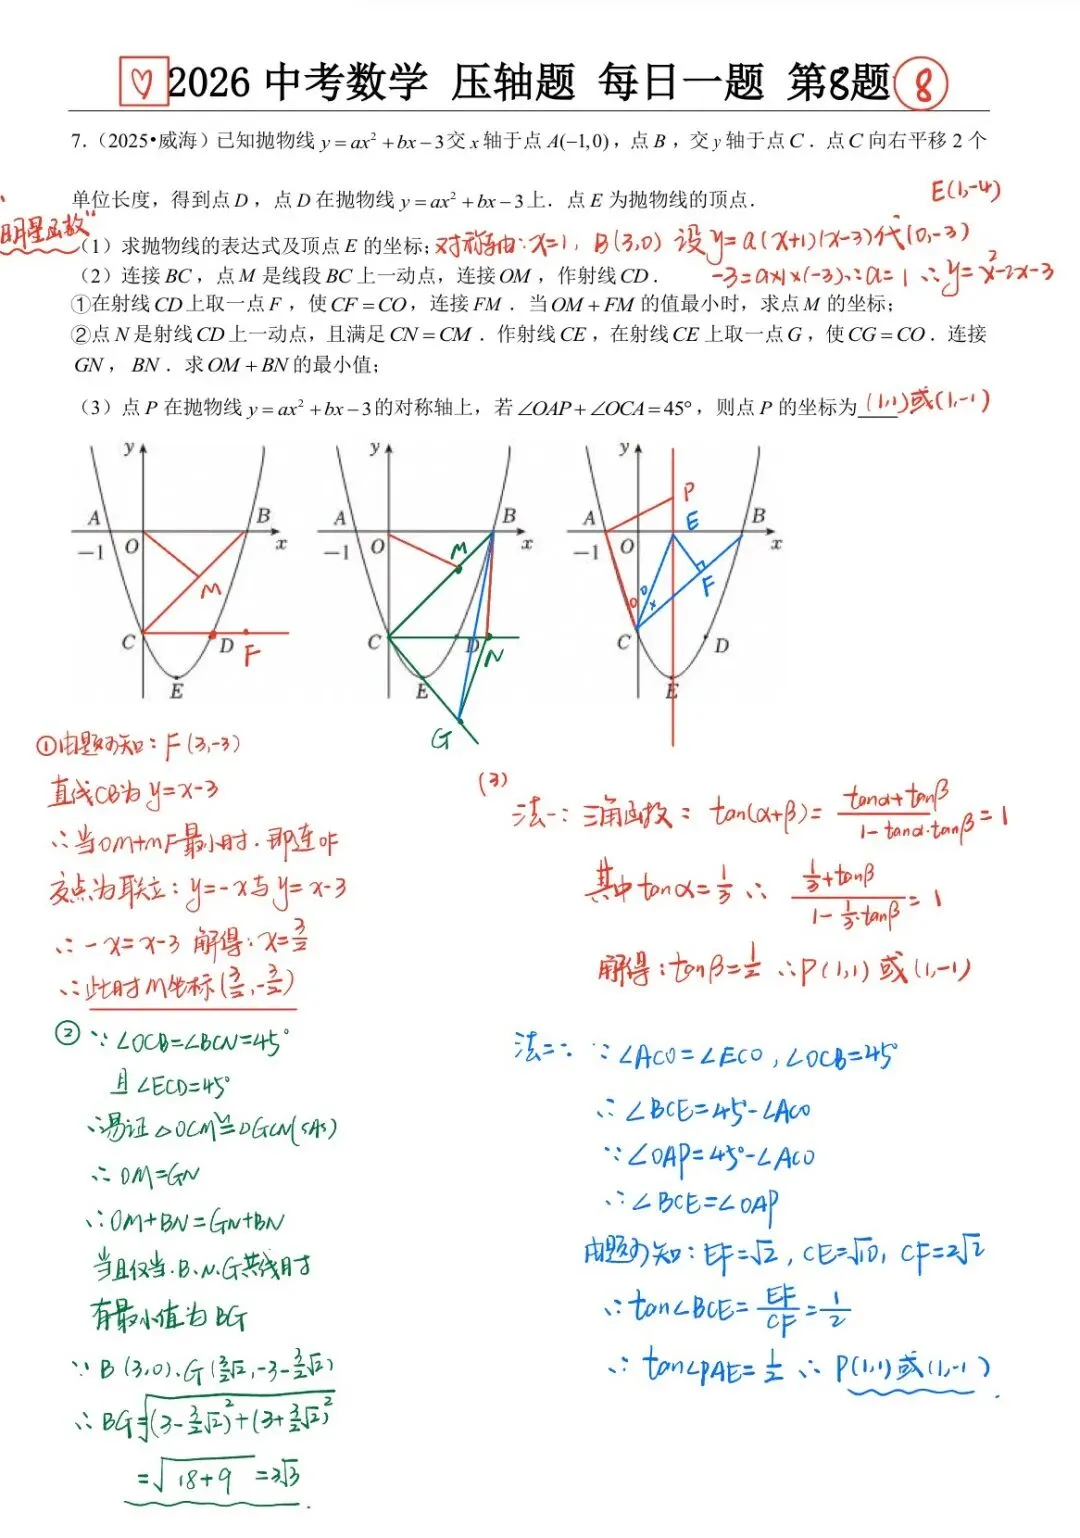 ♡ 2026 中考数学 压轴题 每日一题 第8题 8
7.（2025•威海）已知抛物线 y=ax²+bx−3交 x 轴于点 A(−1,0)，点 B，交 y 轴于点 C．点 C 向右平移 2 个
单位长度，得到点 D，点 D 在抛物线 y=ax²+bx−3上．点 E 为抛物线的顶点．
E(1,-4)
"明星函数"
（1）求抛物线的表达式及顶点 E 的坐标; 对称轴: x=1, B(3,0) 设 y=a(x+1)(x-3)代(0,-3)
（2）连接 BC，点 M 是线段 BC 上一动点，连接 OM，作射线 CD．
-3=a×1×(-3)∴a=1 ∴y=x²-2x-3
①在射线 CD 上取一点 F，使 CF=CO，连接 FM．当 OM+FM 的值最小时，求点 M 的坐标；
②点 N 是射线 CD 上一动点，且满足 CN=CM．作射线 CE，在射线 CE 上取一点 G，使 CG=CO．连接
GN，BN．求 OM+BN 的最小值；
（3）点 P 在抛物线 y=ax²+bx−3的对称轴上，若 ∠OAP+∠OCA=45°，则点 P 的坐标为____ (1,1)或(1,-1)
y A −1 O B x M C D F E
y A −1 O B x M C D N E G
y P A −1 O E B x F C D E
①由题可知: F(3,-3)
直线CB为 y=x-3
∴当OM+MF最小时. 即连OF
交点为联立: y=-x与 y=x-3
∴ -x=x-3 解得: x=3/2
∴此时M坐标(3/2,-3/2)
② ∵∠OCB=∠BCN=45°
且∠ECD=45°
∴易证△OCM≌△GCN(SAS)
∴OM=GN
∴OM+BN=GN+BN
当且仅当.B.N.G共线时
有最小值为BG
∵ B(3,0).G(3/2√2,-3-3/2√2)
∴ BG=√((3-3/2√2)²+(3+3/2√2)²
=√(18+9) =3√3.
(3)
法一: 三角函数: tan(α+β)= (tanα+tanβ)/(1-tanα·tanβ)=1
其中tanα=1/3 ∴ (1/3+tanβ)/(1-1/3·tanβ)=1
解得: tanβ=1/2 ∴P(1,1)或(1,-1)
法二: ∵∠ACO=∠ECO, ∠OCB=45°
∴∠BCE=45°-∠ACO
∵∠OAP=45°-∠ACO
∴∠BCE=∠OAP
由题可知: EF=√2, CE=√10, CF=2√2
∴tan∠BCE=EF/CF=1/2
∴tan∠PAE=1/2 ∴P(1,1)或(1,-1).